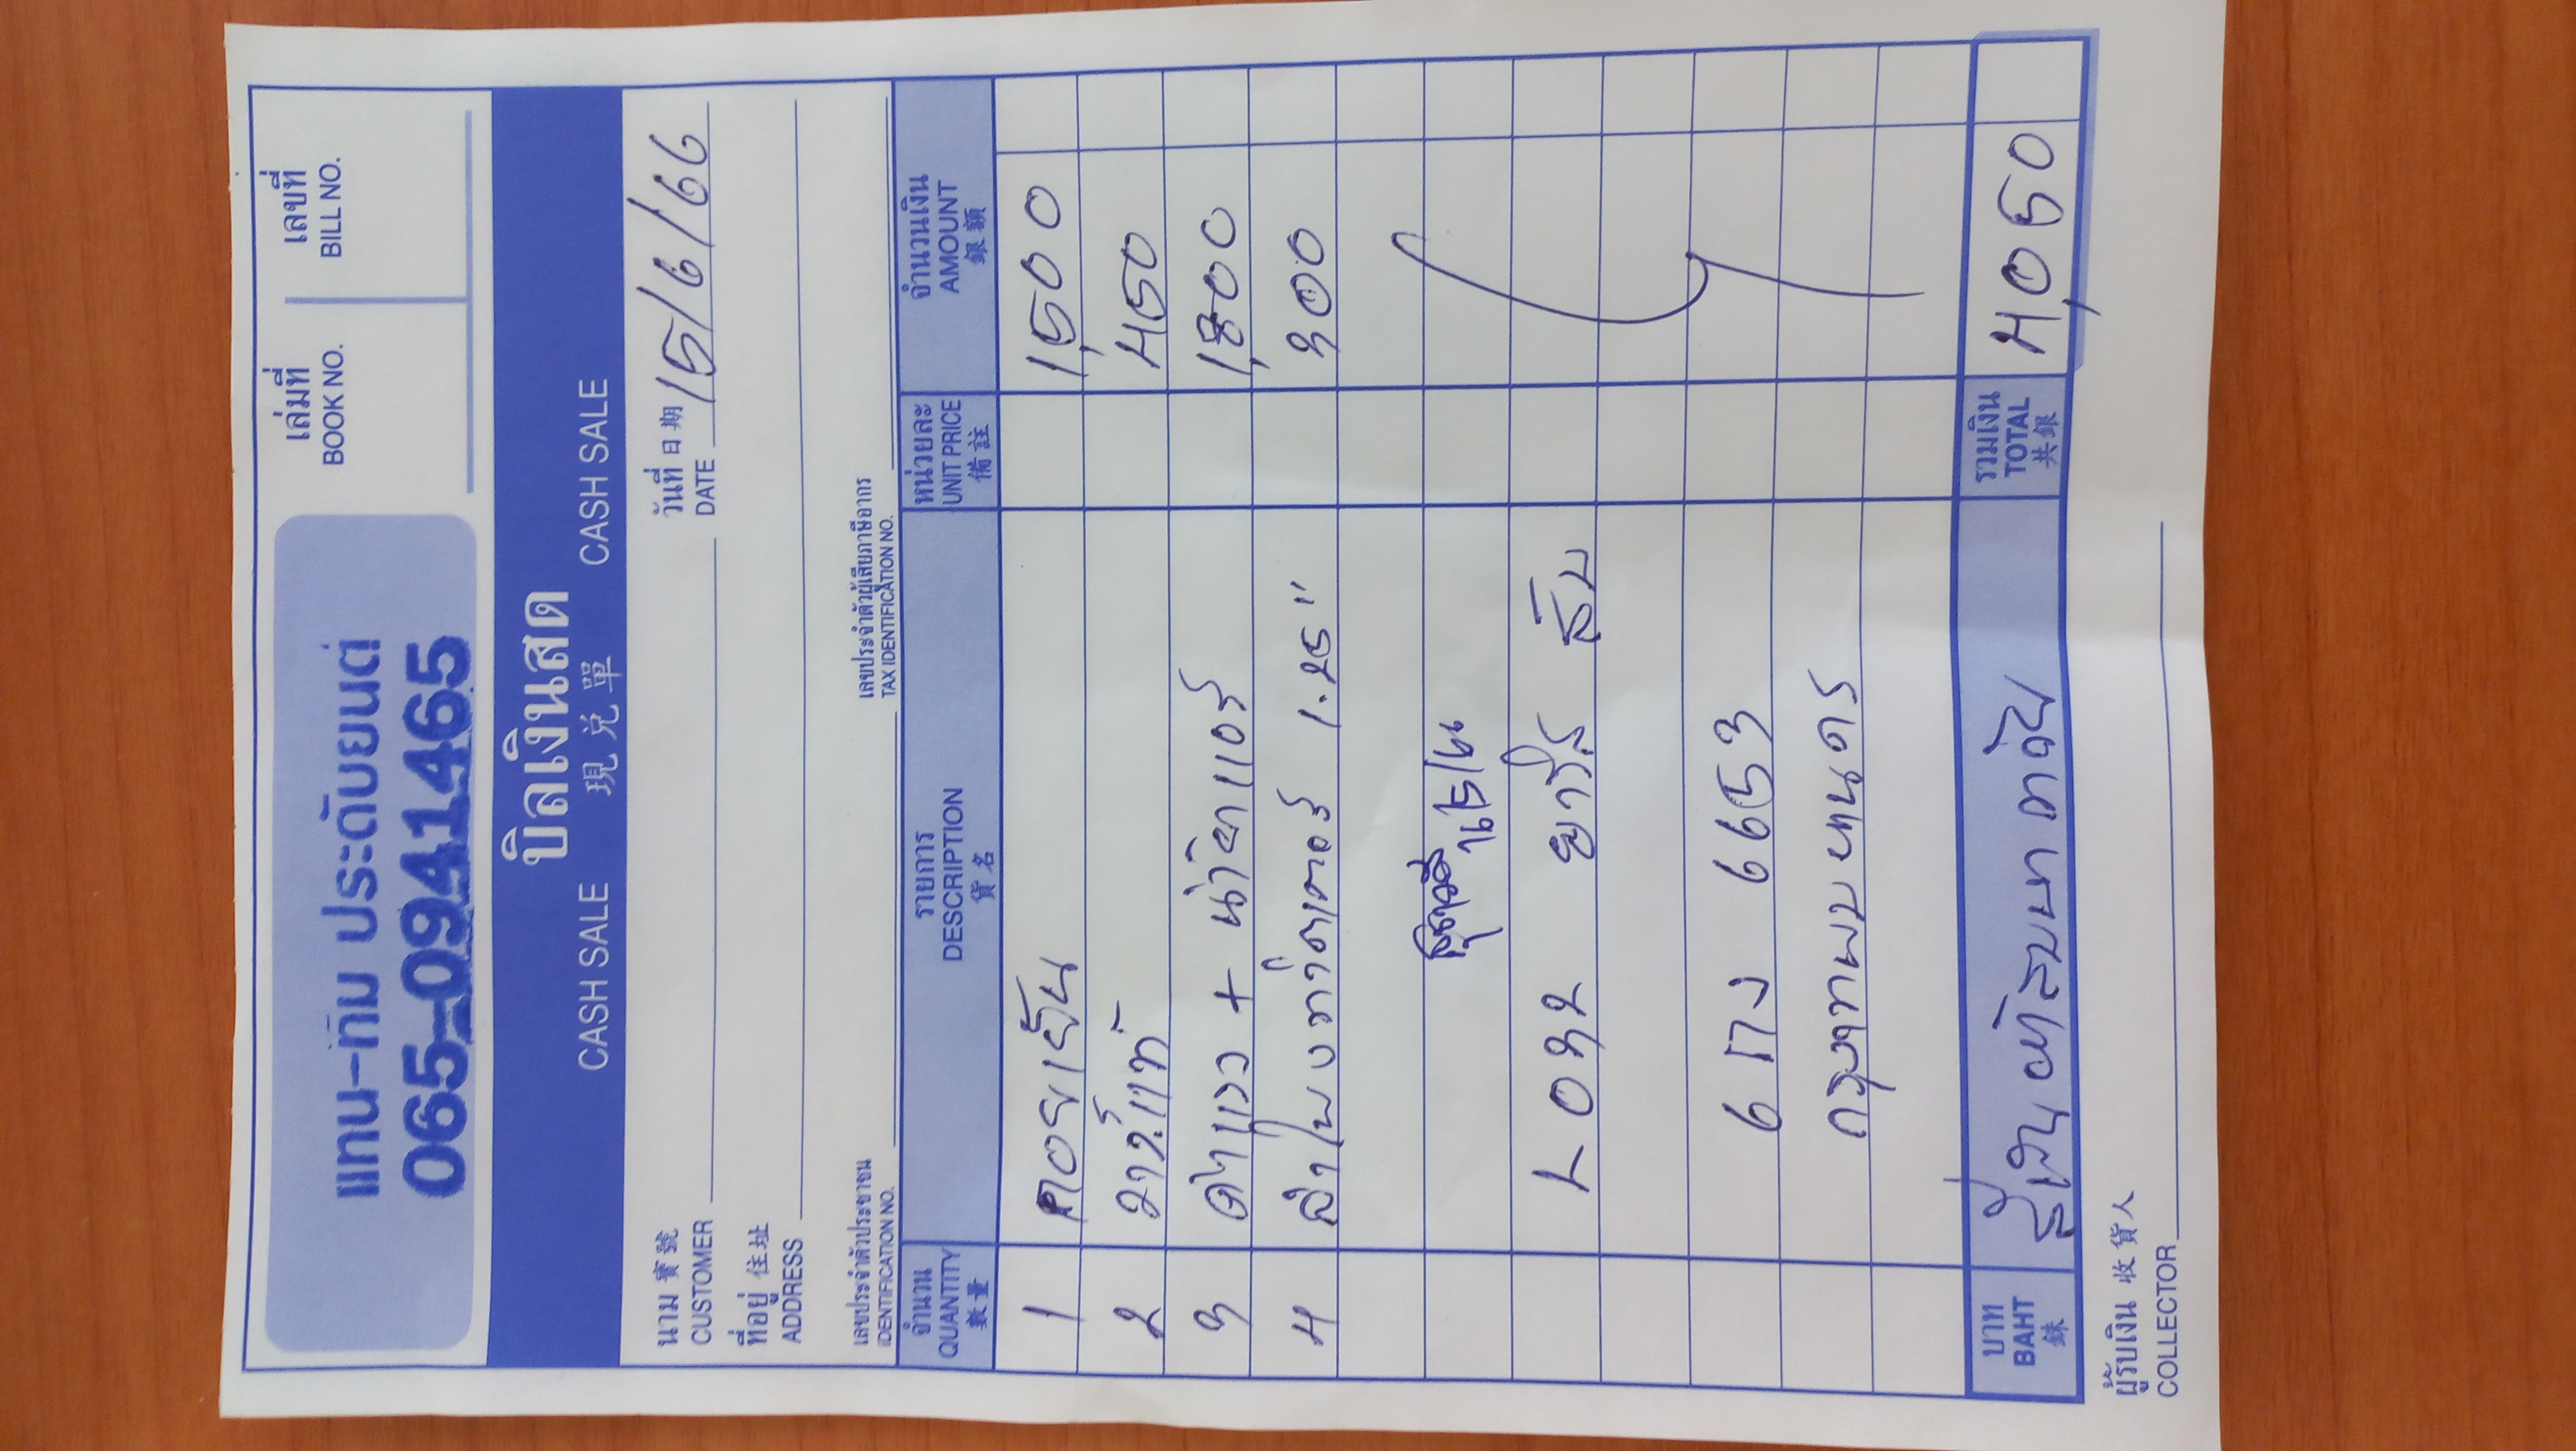 แทน-ทีม ประดับยนต์
065-0941465
เล่มที่ เลขที่
BOOK NO. BILL NO.
บิลเงินสด
CASH SALE 現兌單 CASH SALE
นาม 寶號 วันที่ 日期
CUSTOMER DATE 15/6/66
ที่อยู่ 住址
ADDRESS
เลขประจำตัวประชาชน เลขประจำตัวผู้เสียภาษีอากร
IDENTIFICATION NO. TAX IDENTIFICATION NO.
จำนวน รายการ หน่วยละ จำนวนเงิน
QUANTITY DESCRIPTION UNIT PRICE AMOUNT
數量 貨名 備註 銀額
1 คอยเย็น 1,500
2 วาล์วแท้ 450
3 ค่าแรง + น้ำยาแอร์ 1,800
4 สายพาน 1.25" 300
L032 ยาริส ส้ม
6 กง 6653
กรุงเทพมหานคร
บาท รวมเงิน
BAHT สี่พันห้าสิบบาทถ้วน TOTAL 4,050
銖 共銀
ผู้รับเงิน 收貨人
COLLECTOR